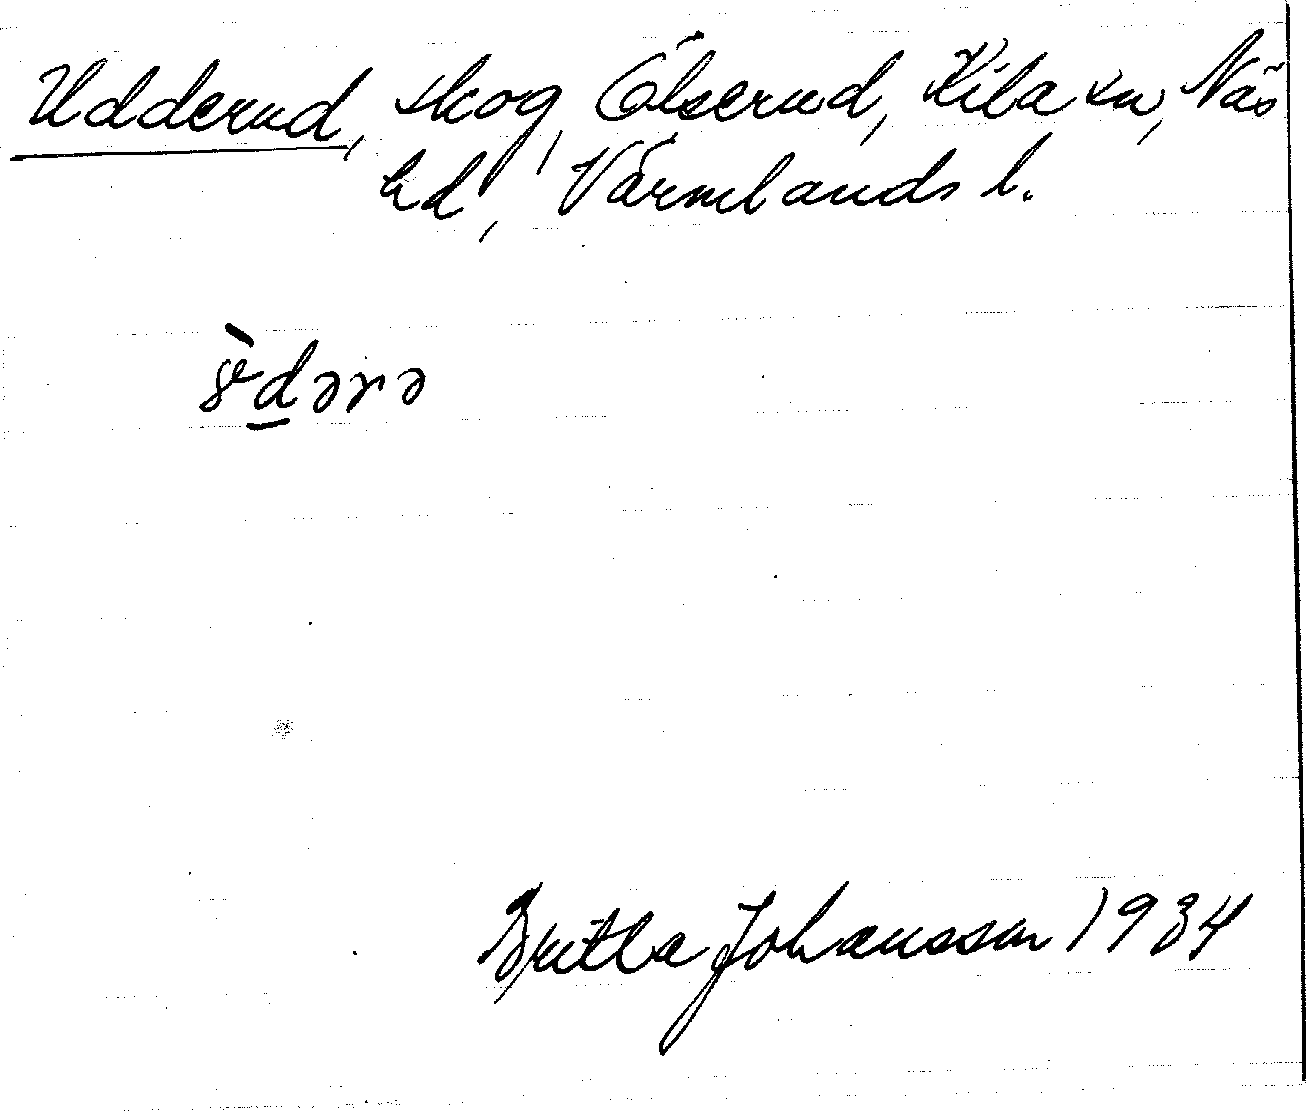 Udderud, skog, Ölserud, Kila sn, Näs
hd, Värmlands l.
dərə
Britta Johansson 1934